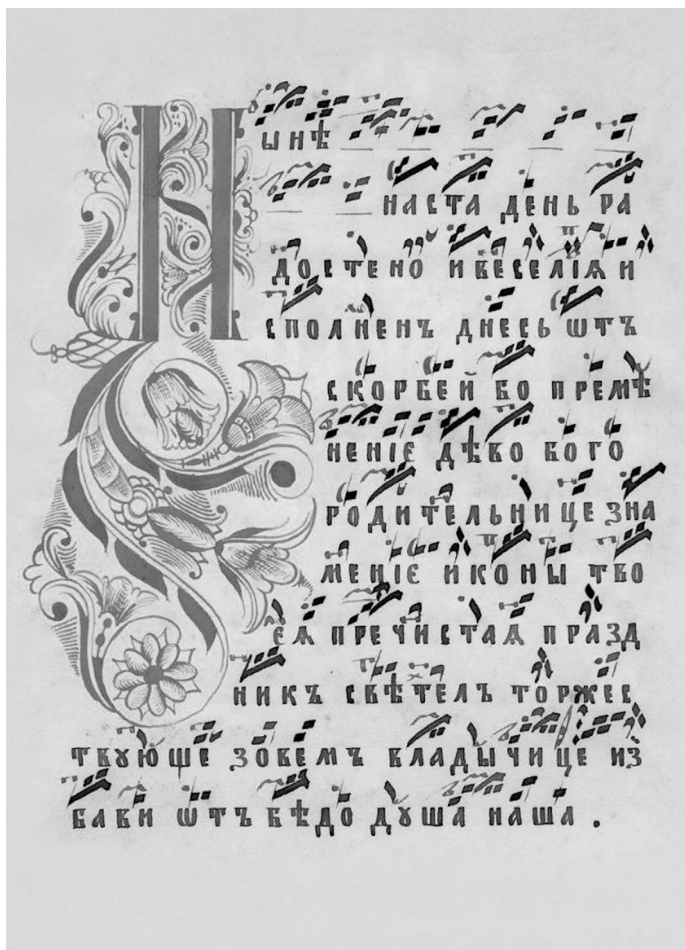 Нынѣ
наста день ра
достено и веселіѧ и
сполненъ днесь ѿтъ
скорбей бо премѣ
неніе дѣво бого
родительнице зна
меніе иконы тво
еѧ пречистаѧ празд
никъ свѣтелъ торжес
твꙋюще зовемъ владычице из
бави ѿтъ бѣдо дꙋша наша .